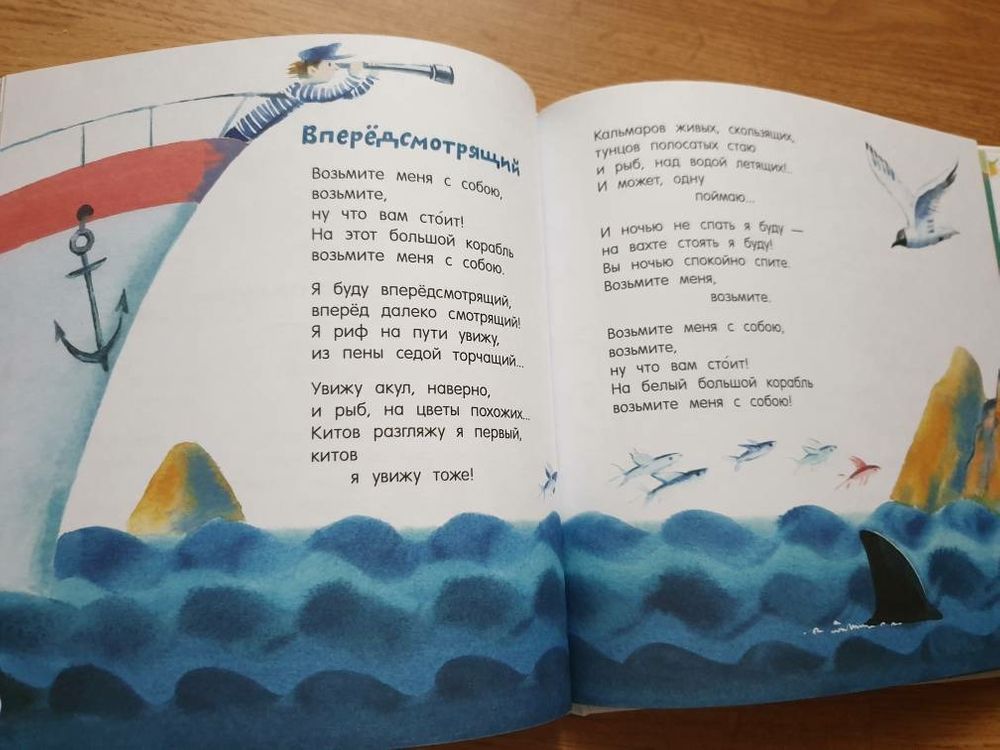 Вперёдсмотрящий
Возьмите меня с собою,
возьмите,
ну что вам сто́ит!
На этот большой корабль
возьмите меня с собою.
Я буду вперёдсмотрящий,
вперёд далеко смотрящий!
Я риф на пути увижу,
из пены седой торчащий...
Увижу акул, наверно,
и рыб, на цветы похожих...
Китов разгляжу я первый,
китов
я увижу тоже!
Кальмаров живых, скользящих,
тунцов полосатых стаю
и рыб, над водой летящих!..
И может, одну
поймаю...
И ночью не спать я буду —
на вахте стоять я буду!
Вы ночью спокойно спите.
Возьмите меня,
возьмите.
Возьмите меня с собою,
возьмите,
ну что вам сто́ит!
На белый большой корабль
возьмите меня с собою!